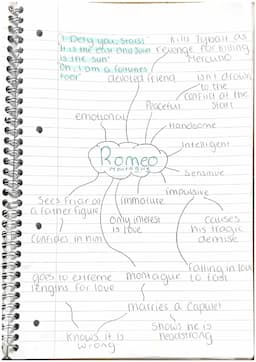 'I Defy you, Stars!'
'It is the east and Juliet
is the sun'
'Oh, I am a fortunes
fool'
Kills Tybalt as
revenge for killing
Mercutio
devoted friend
isn't drawn
to the
conflict at the
start
Peaceful
emotional
Handsome
Intelligent
Romeo
montague
Sensitive
impulsive
immature
Sees Friar as
a father figure
only interest
is love
causes
his tragic
demise
confides in him
falling in love
to fast
goes to extreme
lengths for love
montague
marries a Capulet
Shows he is
headstrong
Knows it is
wrong